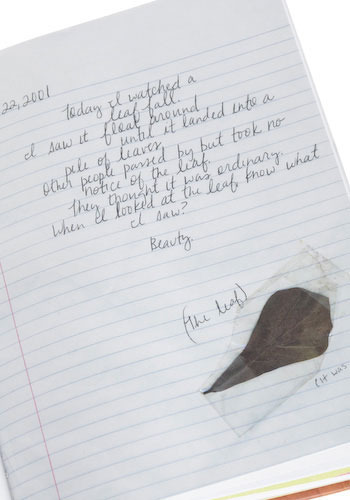 22, 2001
Today I watched a
leaf fall.
I saw it float around
until it landed into a
pile of leaves.
Other people passed by but took no
notice of the leaf.
They thought it was ordinary.
When I looked at the leaf, know what
I saw?
Beauty.
(The leaf)
(It was